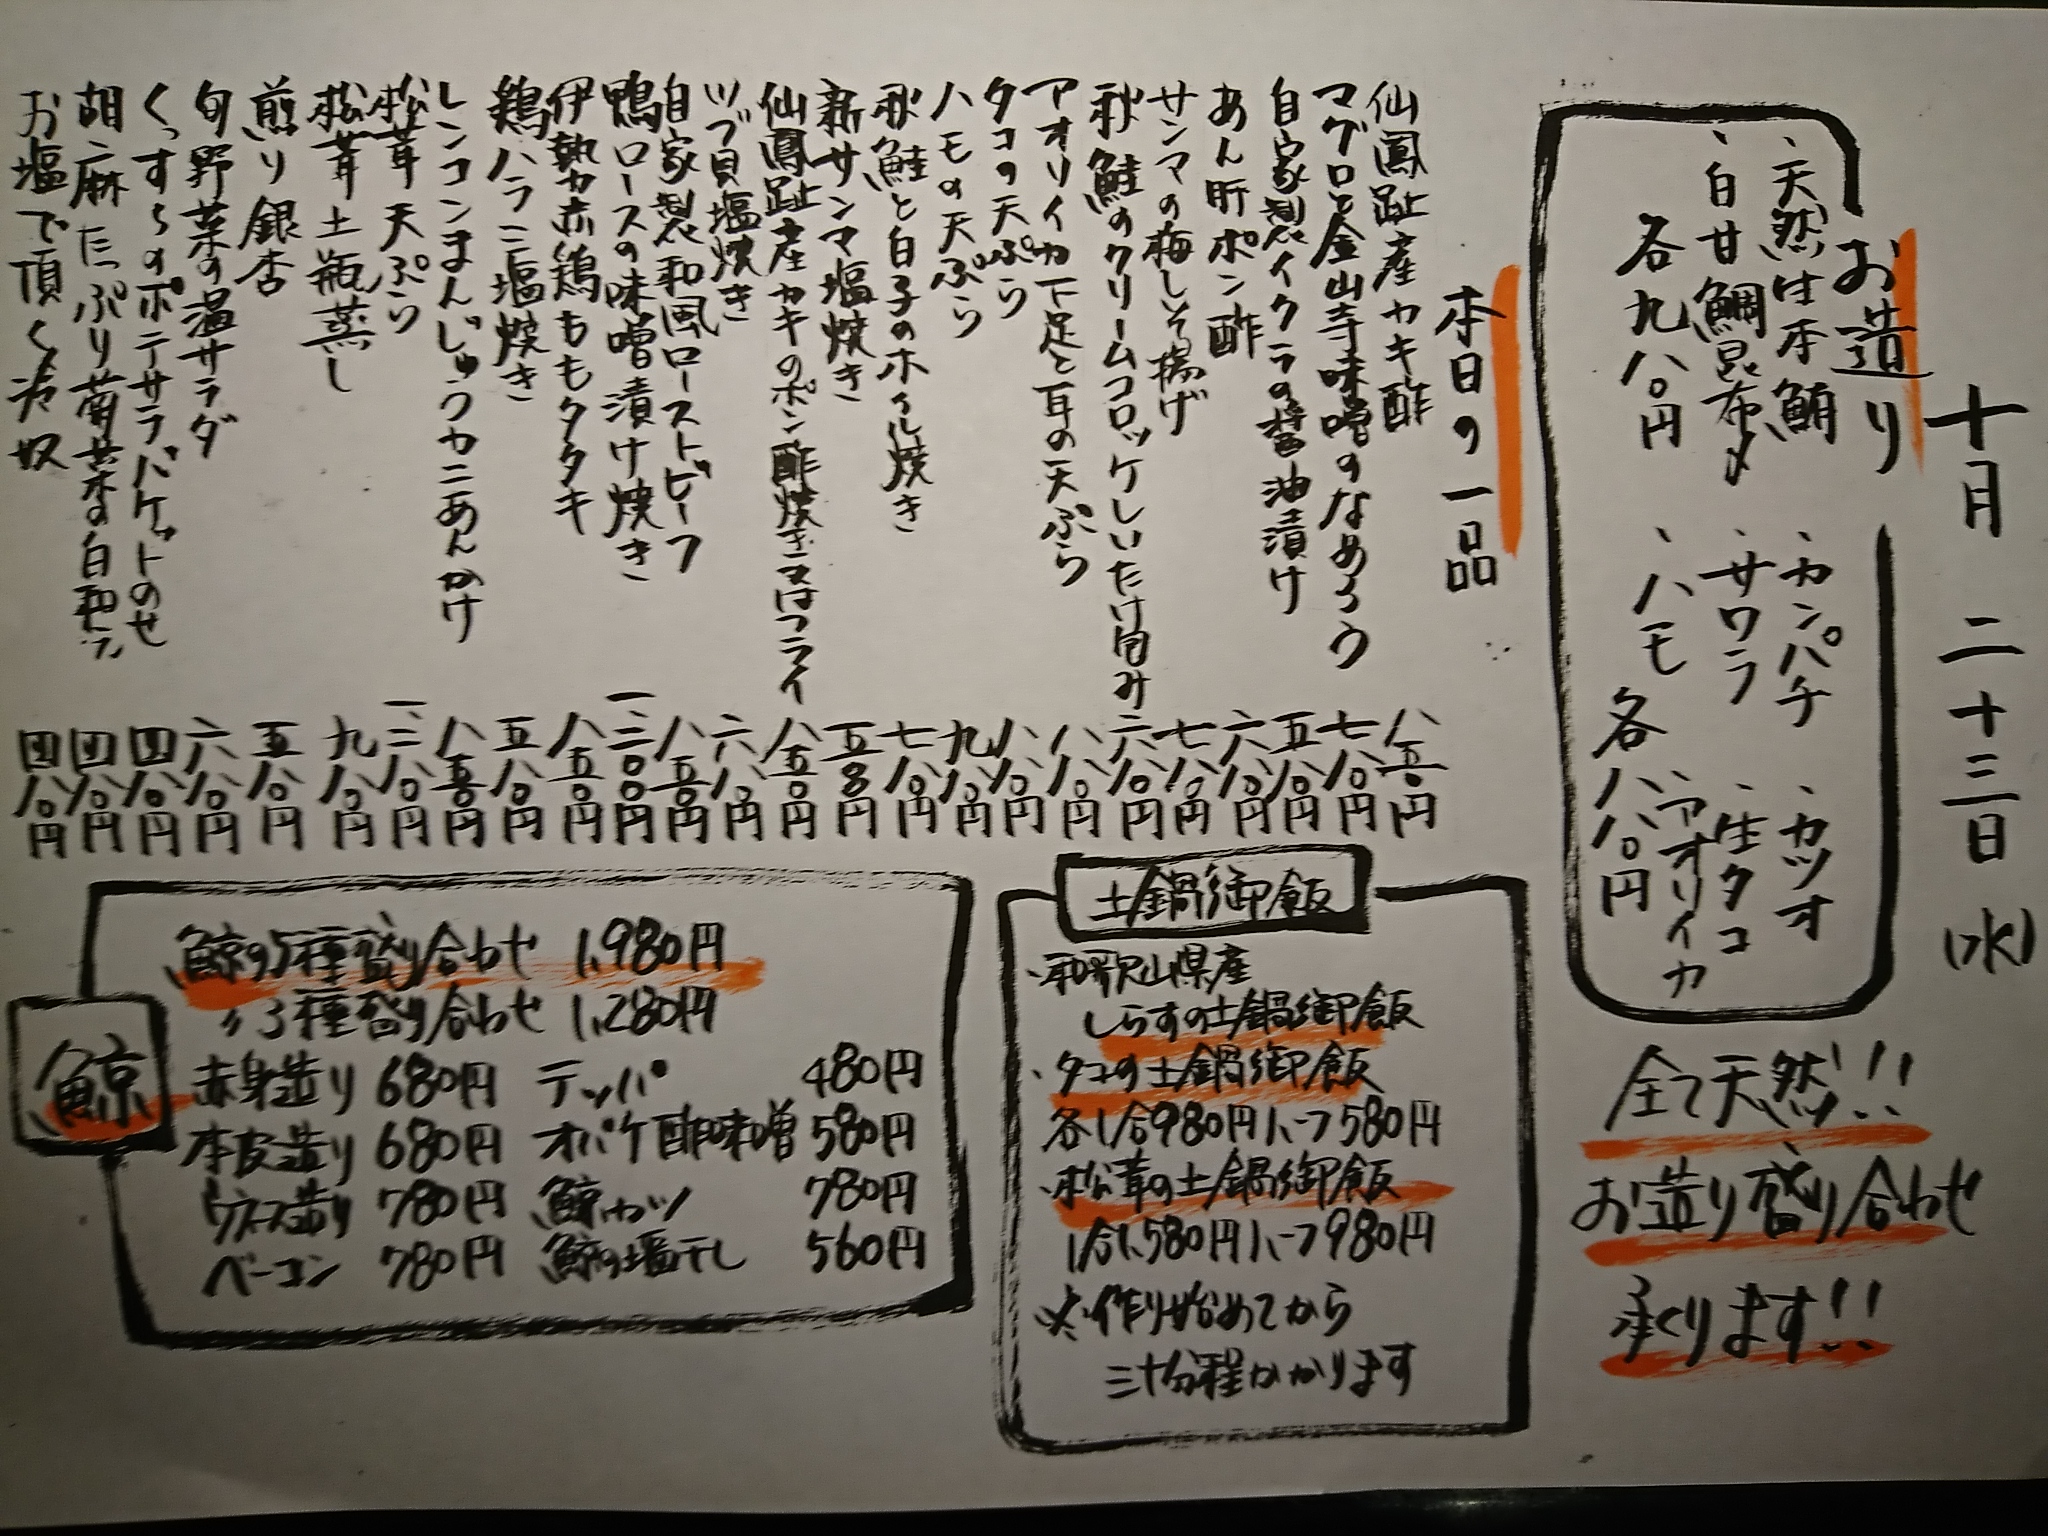 十月二十三日(水)
お造り
、天然生本鮪
、白甘鯛昆布〆
各九八〇円
、カンパチ
、カツオ
、サワラ
、生タコ
、ハモ
、アオリイカ
各八八〇円
全て天然!!
お造り盛り合わせ
承ります!!
本日の一品
仙鳳趾産カキ酢 八五〇円
マグロと金山寺味噌のなめろう 七八〇円
自家製イクラの醤油漬け 五八〇円
あん肝ポン酢 六八〇円
サンマの梅しそ揚げ 七八〇円
秋鮭のクリームコロッケしいたけ包み 六八〇円
アオリイカ下足と耳の天ぷら 八八〇円
タコの天ぷら 八八〇円
ハモの天ぷら 九八〇円
秋鮭と白子のホイル焼き 七八〇円
新サンマ塩焼き 五八〇円
仙鳳趾産カキのポン酢焼き又はフライ 八五〇円
ツブ貝塩焼き 六八〇円
自家製和風ローストビーフ 八五〇円
鴨ロースの味噌漬け焼き 一、二〇〇円
伊勢力赤鶏ももタタキ 八五〇円
鶏ハラミ塩焼き 五八〇円
レンコンまんじゅうカニあんかけ 八五〇円
松茸天ぷら 一、二八〇円
松茸土瓶蒸し 九八〇円
煎り銀杏 五八〇円
旬野菜の温サラダ 六八〇円
くっすちのポテサラバケットのせ 四八〇円
胡麻たっぷり菊菜の白和え 四八〇円
お塩で頂く冷奴 四八〇円
土鍋御飯
・和歌山県産
しらすの土鍋御飯
・タコの土鍋御飯
各1合980円ハーフ580円
・松茸の土鍋御飯
1合1,580円ハーフ980円
※作り始めてから
三十分程かかります
鯨
鯨の5種盛り合わせ 1,980円
〃3種盛り合わせ 1,280円
赤身造り 680円 テッパ 480円
本皮造り 680円 オバケ酢味噌 580円
ウネス造り 780円 鯨カツ 780円
ベーコン 780円 鯨の塩干し 560円